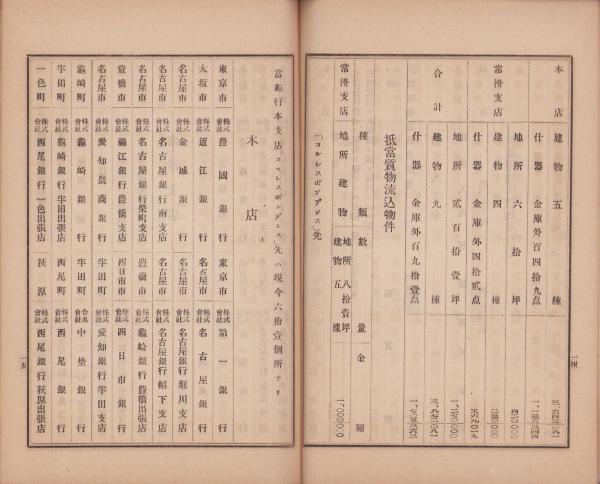 本店 建物五棟
什器金庫外百四拾九点
常滑支店 地所六拾坪
建物四棟
什器金庫外四拾貳点
合計 地所貳百拾壹坪
建物九棟
什器金庫外百九拾壹点
抵當質物流込物件
種類 數量 金額
常滑支店 地所建物 地所八拾壹坪 建物五棟 1,000000
「コルレスポンデンス」先
一四
當銀行本支店「コルレスポンデンス」先ハ現今六拾壹個所ナリ
本店
東京市 株式會社 豊國銀行 東京市 株式會社 第一銀行
大坂市 株式會社 近江銀行 名古屋市 株式會社 名古屋銀行
名古屋市 株式會社 金城銀行 名古屋市 株式會社 名古屋銀行堀川支店
名古屋市 株式會社 名古屋銀行南支店 名古屋市 株式會社 名古屋銀行幅下支店
名古屋市 株式會社 名古屋銀行榮町支店 豊橋市 株式會社 龜崎銀行豊橋出張店
豊橋市 株式會社 銀行豊橋支店 四日市市 株式會社 四日市銀行
名古屋市 株式會社 愛知農商銀行 半田町 株式會社 愛知銀行半田支店
龜崎町 株式會社 龜崎銀行 半田町 合名會社 中埜銀行
半田町 株式會社 龜崎銀行半田出張店 西尾町 株式會社 西尾銀行
一色町 株式會社 西尾銀行一色出張店 荻原 株式會社 西尾銀行荻原出張店
一五